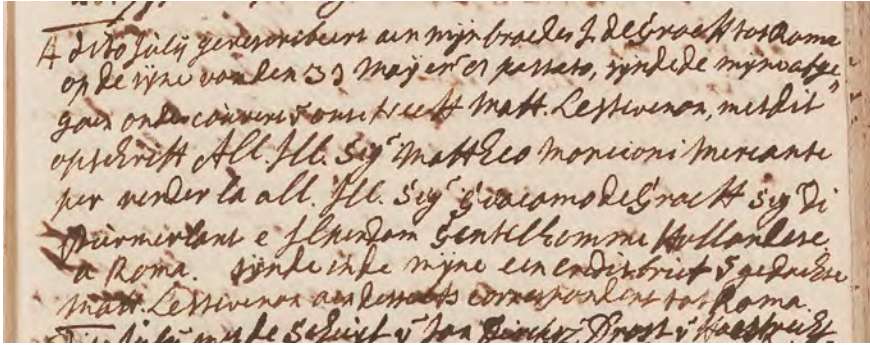 A dito Julij gerescribeert aen mijn broeder J. de Graeff tot Roma
op de sijne van den 31 Maij en passato, sijnde de mijne afge
gaen onder couvert v onse neeff Matt. Lestevenon, met dit
opschrift All. Ill. Sigr Mattheo Moncioni Mercante
per render la all. Ill. Sigr Giacomo de Graeff Sigr Di
Purmerlant e Ilpendam Gentilhomme Hollandese
a Roma. sijnde in de mijne een creditbrief v gedachte
Matt. Lestevenon aen correspondent tot Roma.
Julij met de Schuijt v Jan Dircxz Drost v Haestrecht